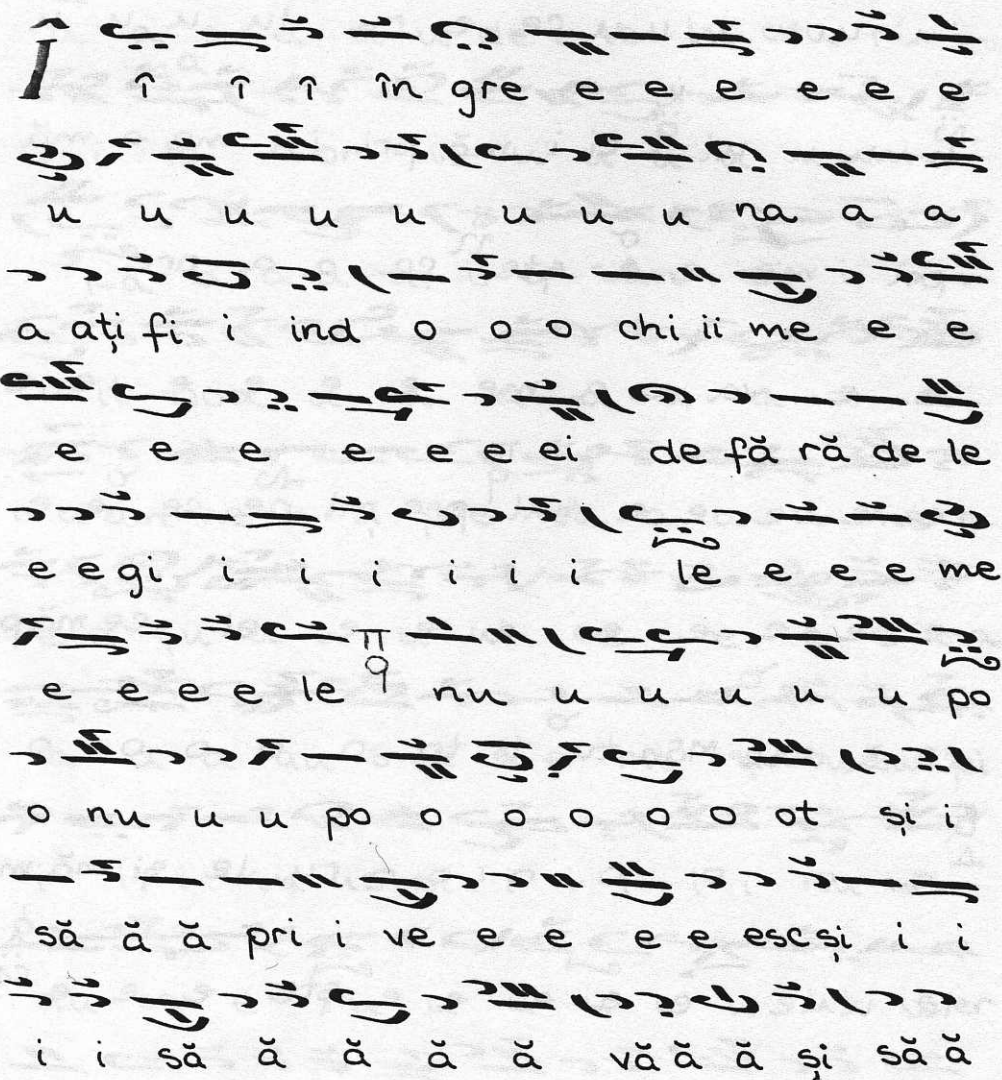 Î î î î în gre e e e e e e
u u u u u u u u na a a
a ați fi i ind o o o chi ii me e e
e e e e e e ei de fă ră de le
e e gi i i i i i i le e e e me
e e e e le π q nu u u u u u po
o nu u u po o o o o o ot și i
să ă ă pri i ve e e e e esc și i i
i i să ă ă ă ă vă ă ă și să ă